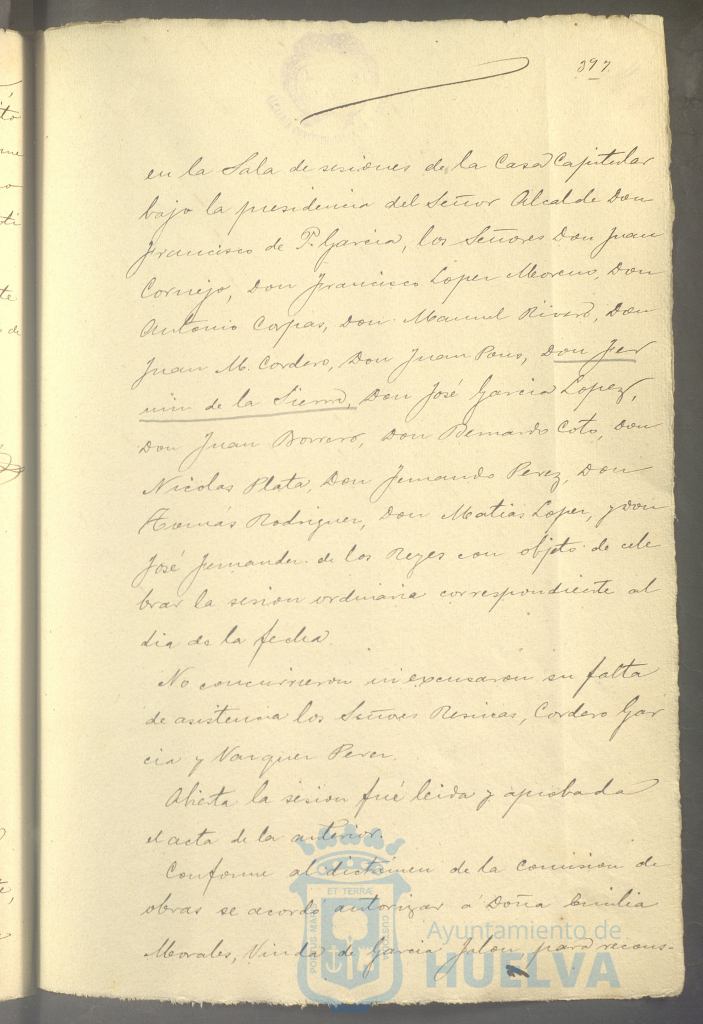 397
en la Sala de sesiones de la Casa Capitular
bajo la presidencia del Señor Alcalde Don
Francisco de P. Garcia, los Señores Don Juan
Cornejo, Don Francisco Lopez Moreno, Don
Antonio Corpas, Don Manuel Rivero, Don
Juan M. Cordero, Don Juan Pons, Don Fer
min de la Sierra, Don José Garcia Lopez,
Don Juan Borrero, Don Bernardo Coto, Don
Nicolas Plata, Don Fernando Perez, Don
Tomás Rodriguez, Don Matias Lopez, y Don
José Fernandez de los Reyes con objeto de cele
brar la sesion ordinaria correspondiente al
dia de la fecha.
No concurrieron ni excusaron su falta
de asistencia los Señores Cordero Gar
cia y Vazquez Perez.
Abierta la sesion fué leida y aprobada
el acta de la anterior.
Conforme al dictámen de la comision de
obras se acordó autorizar á Doña Emilia
Morales, Viuda de Garcia Jalon para recons-
ET TERRÆ
PORTUS MARIS
CUSTODIA
Ayuntamiento de
HUELVA